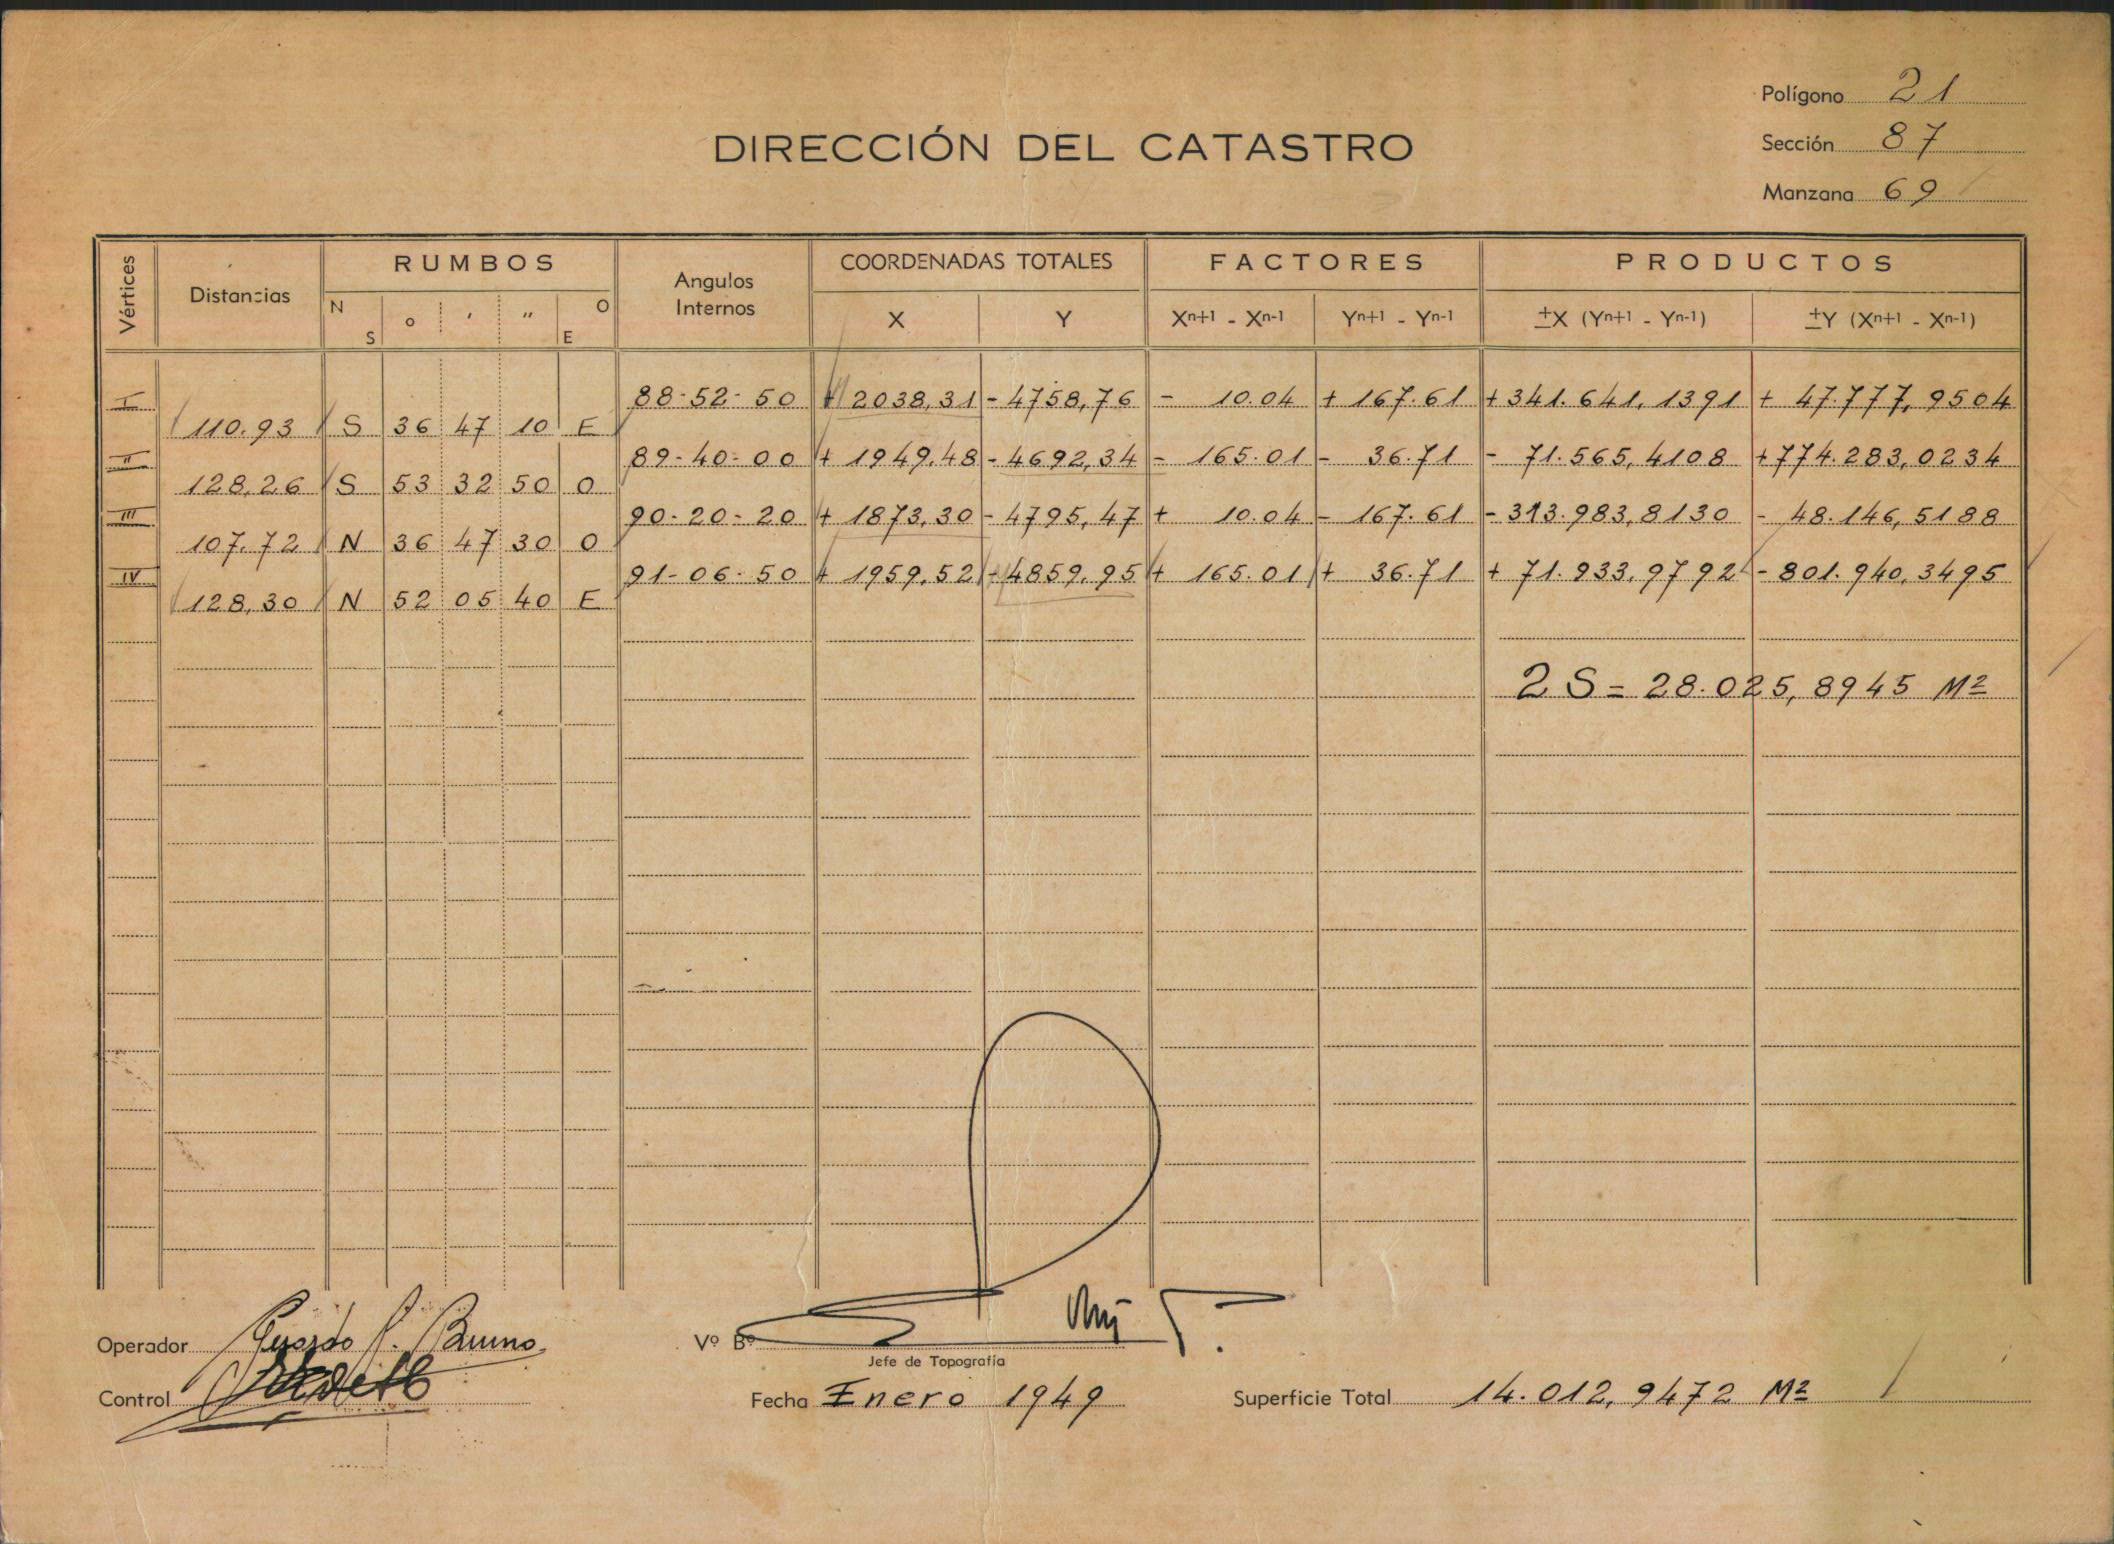 Polígono 21
DIRECCIÓN DEL CATASTRO
Sección 87
Manzana 69
Vértices Distancias RUMBOS Angulos Internos COORDENADAS TOTALES FACTORES PRODUCTOS
N S o ' " O E X Y Xn+1 - Xn-1 Yn+1 - Yn-1 ±X (Yn+1 - Yn-1) ±Y (Xn+1 - Xn-1)
I 88-52-50 + 2038,31 - 4758,76 - 10.04 + 167.61 + 341.641,1391 + 47.777,9504
110.93 S 36 47 10 E
II 89-40-00 + 1949,48 - 4692,34 - 165.01 - 36.71 - 71.565,4108 + 774.283,0234
128,26 S 53 32 50 O
III 90-20-20 + 1873,30 - 4795,47 + 10.04 - 167.61 - 313.983,8130 - 48.146,5188
107.72 N 36 47 30 O
IV 91-06-50 + 1959,52 - 4859,95 + 165.01 + 36.71 + 71.933,9792 - 801.940,3495
128,30 N 52 05 40 E
2 S = 28.025,8945 M2
Operador Bruno
Vº Bº
Jefe de Topografía
Control
Fecha Enero 1949
Superficie Total 14.012,9472 M2